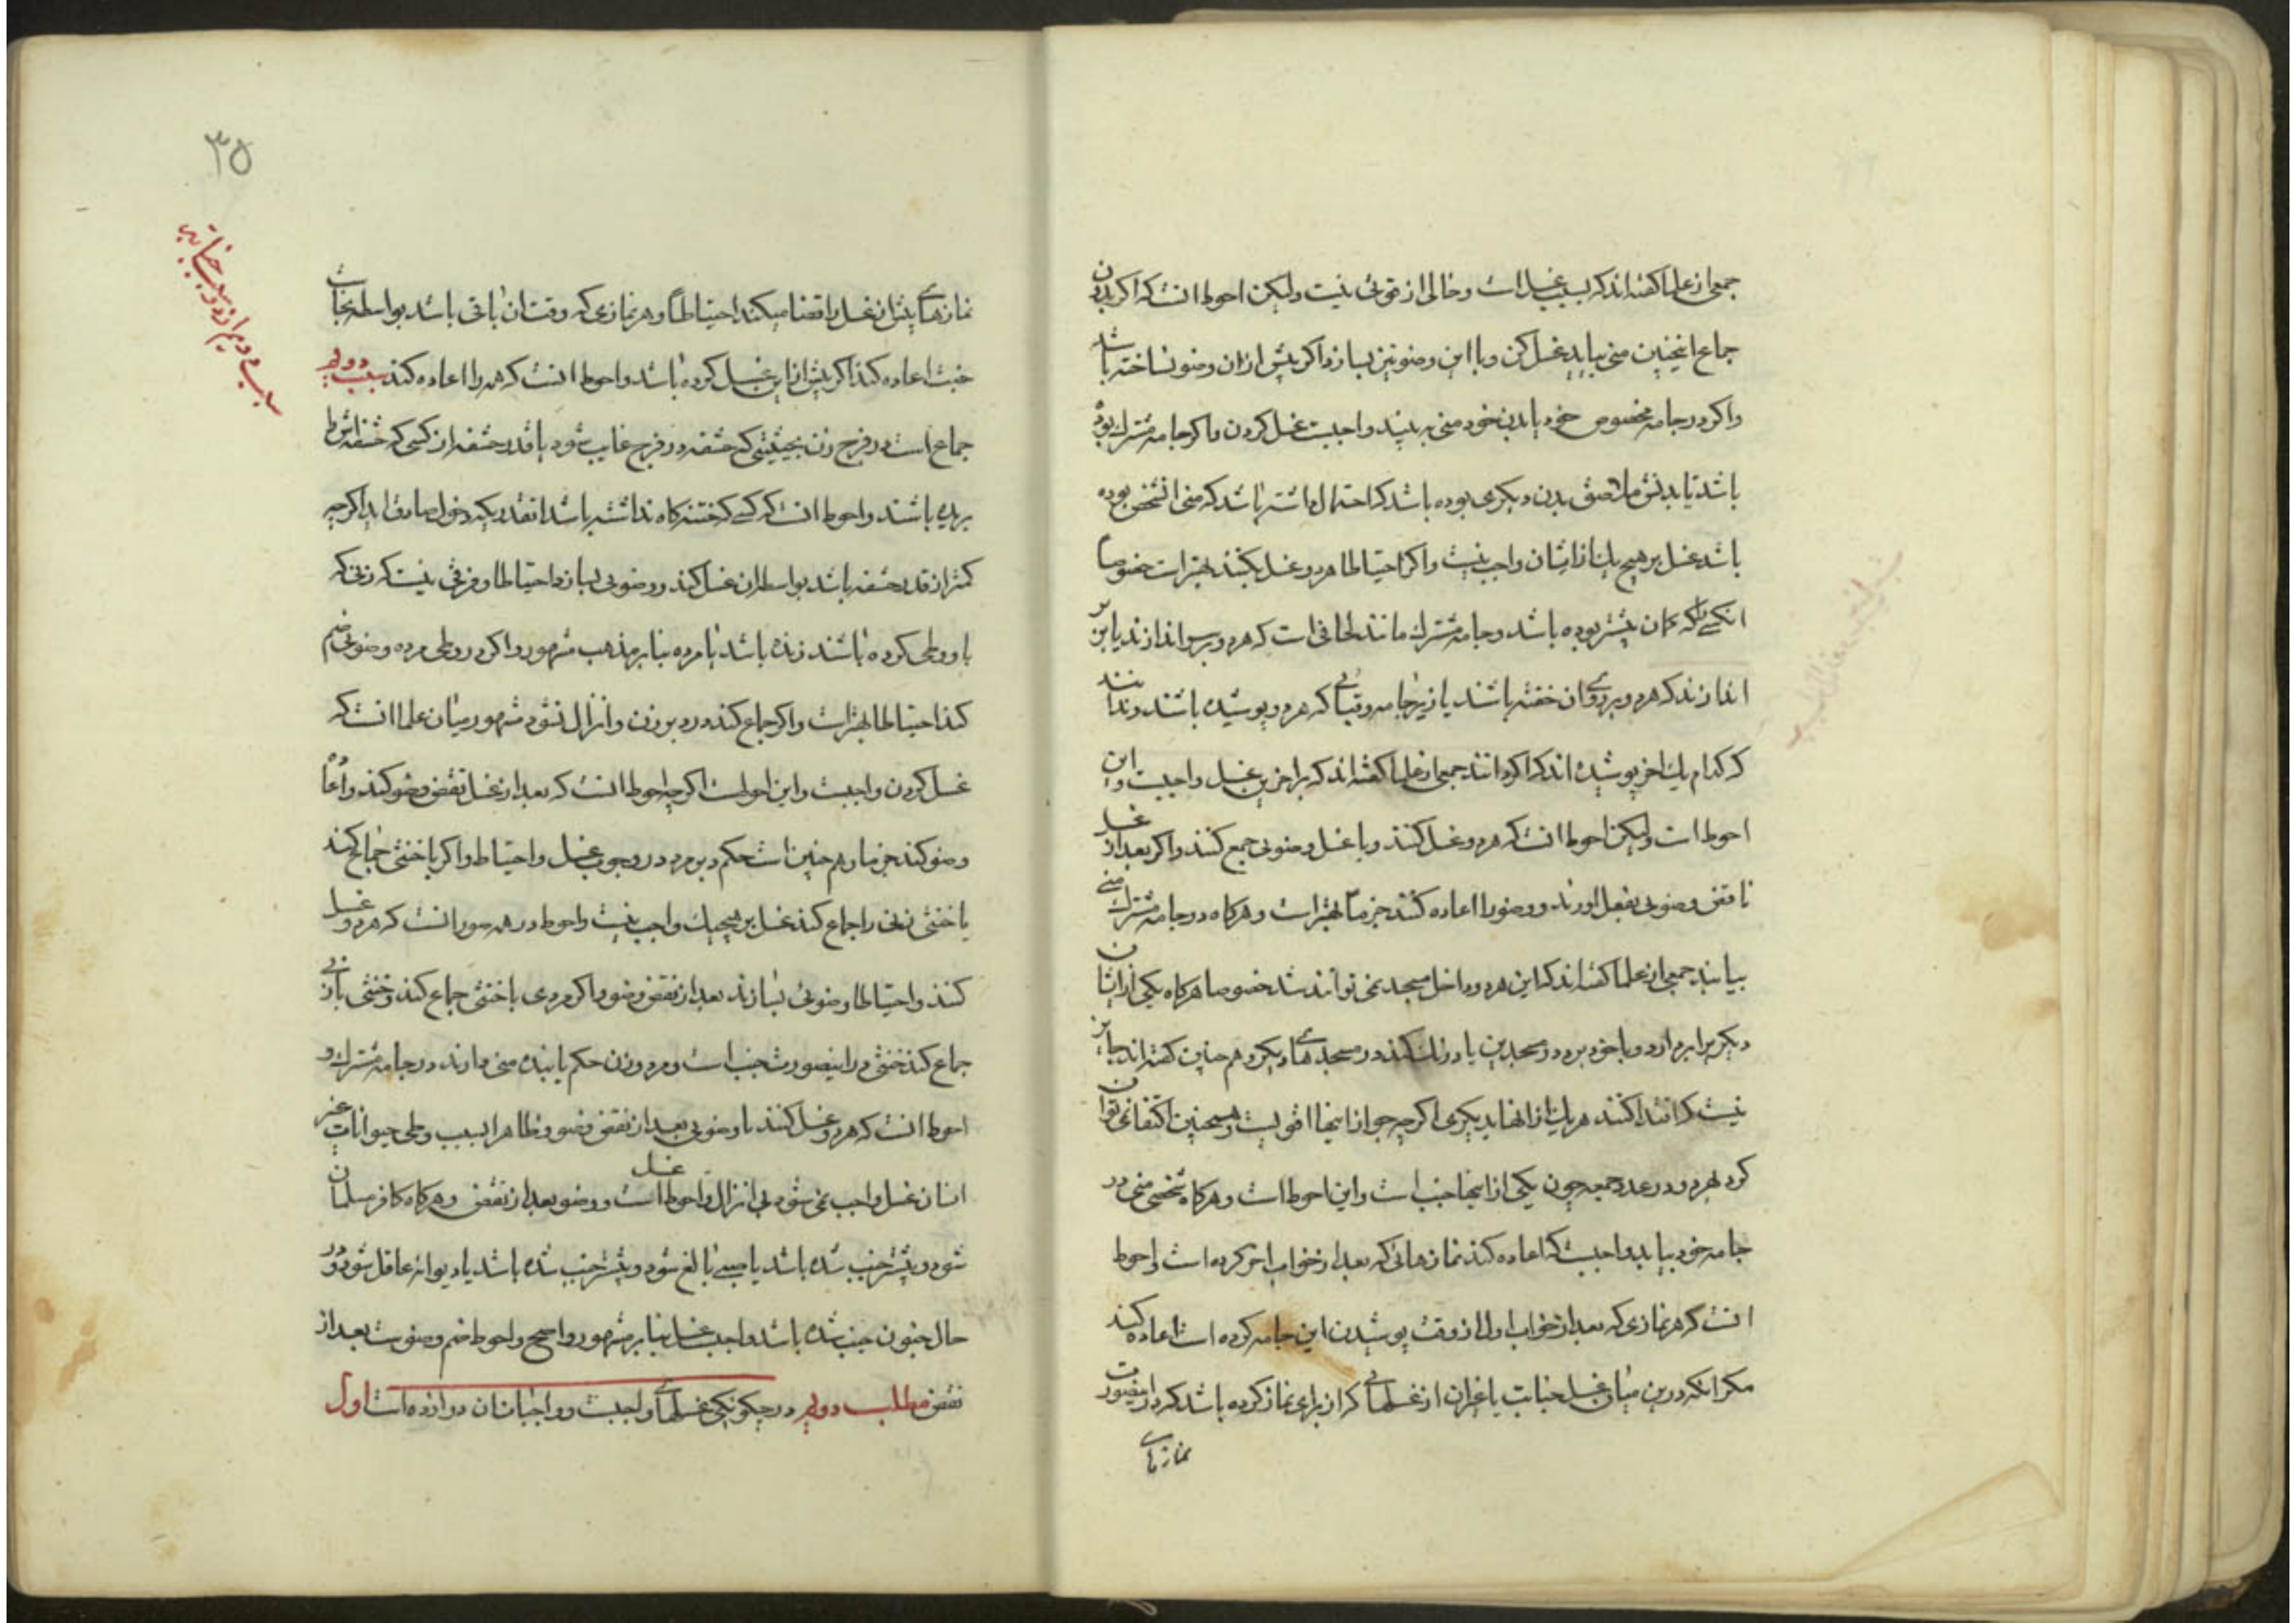 جمعی از علما گفته‌اند که سبب غسل است و خالی از قوتی نیست ولیکن احوط انست که اگر بدون
جماع اینچنین منی بیاید غسل کن و با این وضو نیز بسازد اگر پیش ازان وضو نساخته باشد
و اگر در جامه مخصوص خود یا بدن خود منی به بیند واجبست غسل کردن و اگر جامه مشترک بوده
باشد یا بدنش ملاصق بدن دیگری بوده باشد که احتمال داشته باشد که منی انشخص بوده
باشد غسل بر هیچ یک از ایشان واجب نیست و اگر احتیاطا هر دو غسل بکنند بهتر است خصوصا
انکسی را که گمان بیشتر بوده باشد و جامه مشترک مانند لحافی است که هر دو بر سر اندازند یا بر زیر
اندازند که هر دو بر روی ان خفته باشند یا زیر جامه و قبائی که هر دو پوشیده باشند و ندانند
که کدام یک اخر پوشیده‌اند که اگر دانند جمعی از علما گفته‌اند که بر اخرین غسل واجبست و این
احوط است ولیکن احوط انست که هر دو غسل کنند و با غسل وضوئی جمع کنند و اگر بعد از غسل
ناقض وضوئی بفعل اورند و وضو را اعاده کنند جزما بهتر است و هرگاه در جامه مشترک منی
بیابند جمعی از علما گفته‌اند که این هر دو داخل مسجد نمی توانند شد خصوصا هرگاه یکی از ایشان
دیگری را بردارد و با خود برد در مسجدین یا درنگ کنند در مسجدهای دیگر و هم چنین گفته‌اند جایز
نیست که اقتدا کنند هر یک از انها بدیگری اگرچه جواز اینجا اقویست و همچنین اکتفا نمی توان
کرد بهر دو در عدد جمعه چون یکی از اینها جنب است و این احوط است و هرگاه شخصی منی در
جامه خود بیابد واجبست که اعاده کند نمازهائی که بعد از خواب اخر کرده است و احوط
انست که هر نمازی که بعد از خواب اول از وقت پوشیدن این جامه کرده است اعاده کند
مگر انکه درین میان غسل جنابت یا غیر ان از غسلهائی که از برای نماز کرده باشد که در اینصورت
نمازهای
۳۵
سبب دویم از دو سبب جنابت
نمازهای پیش از غسل را قضا میکند احتیاطا و هر نمازی که وقت ان باقی باشد بواسطه نجاست
خبث اعاده کند اگر پیش از این غسل کرده باشد و احوط انست که همه را اعاده کند سبب دویم
جماع است در فرج زن بحیثیتی که حشفه در فرج غایب شود یا قدر حشفه از کسی که حشفه اش را
بریده باشند و احوط انست که کسی که ختنه گاه نداشته باشد انقدر که دخول صادق اید اگرچه
کمتر از قدر حشفه باشد بواسطه ان غسل کند و وضوئی بسازد احتیاطا و فرقی نیست که زنی که
با او وطی کرده باشند زنده باشد یا مرده بنابر مذهب مشهور و اگر در وطی مرده وضوئی ضم
کند احتیاطا بهتر است و اگر جماع کند در دبر زن و انزال نشود مشهور میان علما انست که
غسل کردن واجبست و این احوطست اگرچه احوط انست که بعد از غسل نقض وضو کند و
وضو کند جزما و هم چنین است حکم دبر مرد در وجوب غسل و احتیاط و اگر با خنثی جماع کند
یا خنثی زنی را جماع کند غسل بر هیچیک واجب نیست و احوط در همه صور انست که هر دو غسل
کنند و احتیاطا وضوئی بسازند بعد از نقض وضو و اگر مردی با خنثی جماع کند و خنثی با زنی
جماع کند خنثی در اینصورت جنب است و مرد و زن حکم یابنده منی دارند در جامه مشترک و
احوط انست که هر دو غسل کنند با وضوئی بعد از نقض وضو و ظاهرا بسبب وطی حیوانات غیر
انسان غسل واجب نمی شود بی انزال و احوط غسل است و وضو بعد از نقض و هرگاه کافر مسلمان
شود و پیشتر جنب شده باشد یا صبی بالغ شود و پیشتر جنب شده باشد یا دیوانه عاقل شود و در
حال جنون جنب شده باشد واجبست غسل بنابر مشهور و اصح و احوط ضم وضوست بعد از
نقض مطلب دویم در چگونگی غسلهای واجبست و واجبات ان دوازده است اول